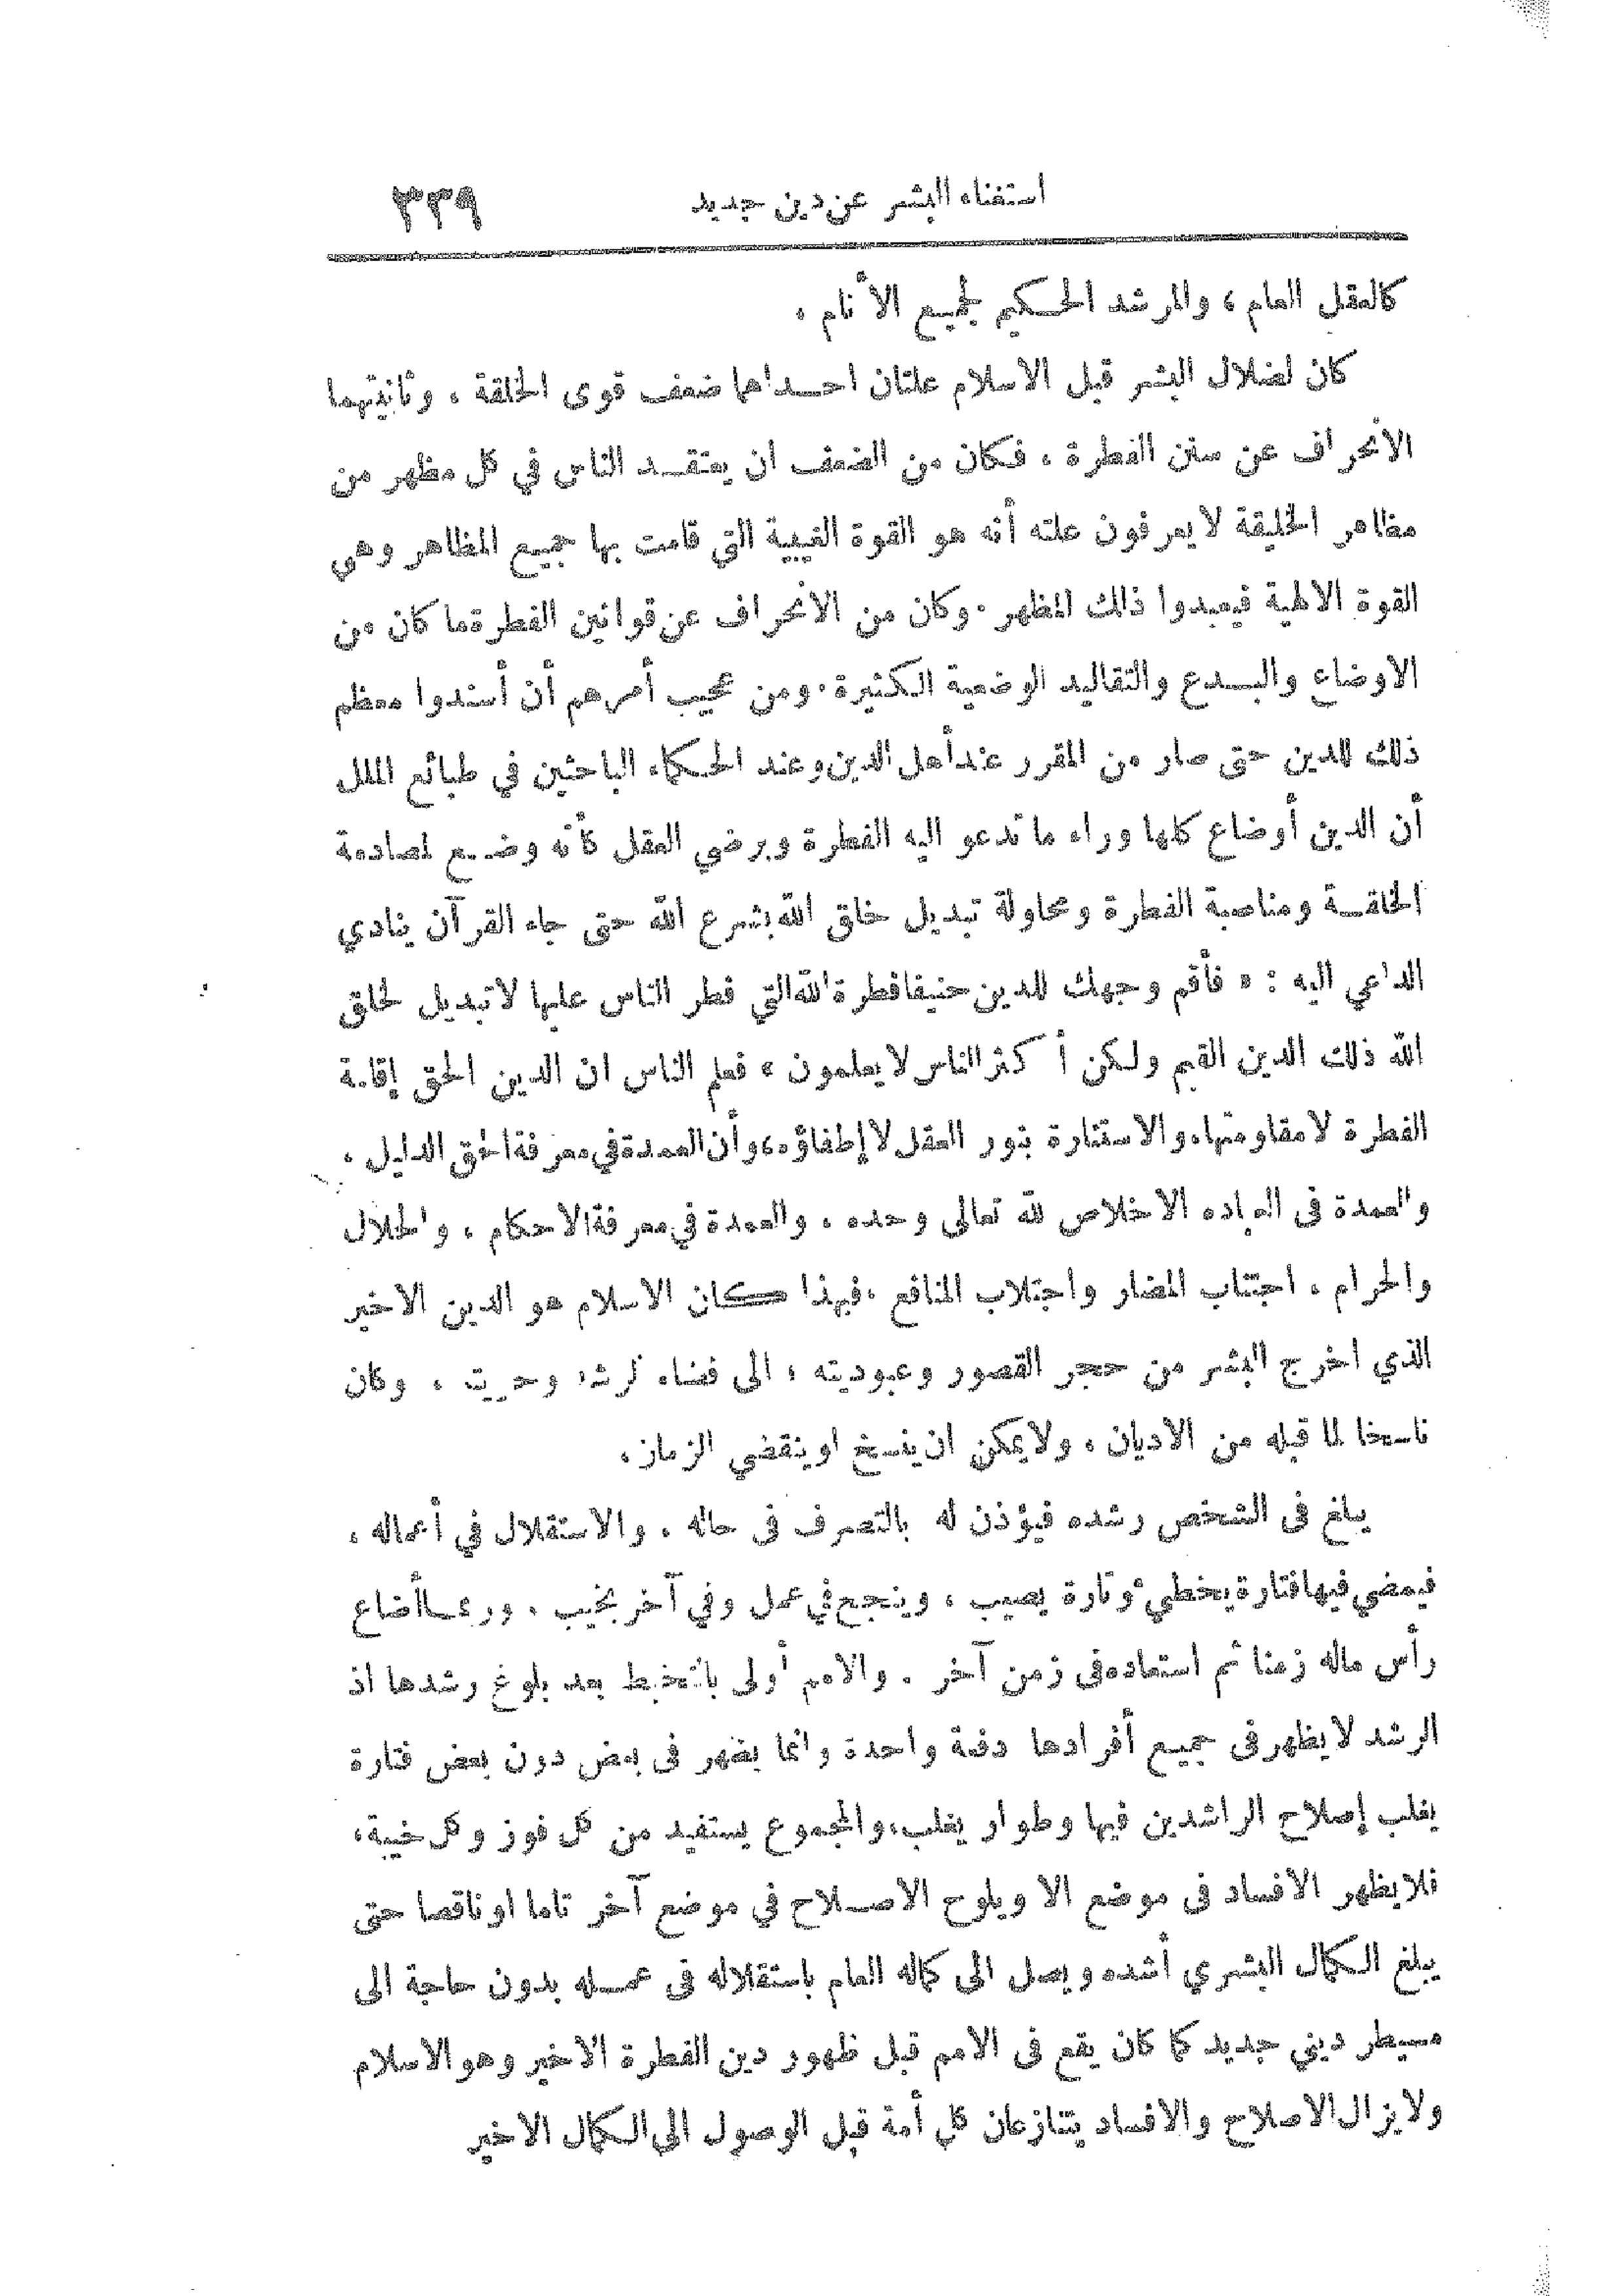 استغناء البشر عن دين جديد ٣٣٩
كالعقل العام ، والمرشد الحكيم لجميع الأنام .
كان لضلال البشر قبل الاسلام علتان احداهما ضعف قوى الخلقة ، وثانيتهما
الانحراف عن سنن الفطرة ، فكان من الضعف ان يعتقد الناس في كل مظهر من
مظاهر الخليقة لا يعرفون علته أنه هو القوة الغيبية التي قامت بها جميع المظاهر وهي
القوة الالهية فيعبدوا ذلك المظهر . وكان من الانحراف عن قوانين الفطرة ما كان من
الاوضاع والبدع والتقاليد الوضعية الكثيرة . ومن عجيب أمرهم أن أسندوا معظم
ذلك للدين حتى صار من المقرر عند أهل الدين وعند الحكماء الباحثين في طبائع الملل
أن الدين أوضاع كلها وراء ما تدعو اليه الفطرة ويرضي العقل كأنه وضع لمصادمة
الخلقة ومناصبة الفطرة ومحاولة تبديل خلق الله بشرع الله حتى جاء القرآن ينادي
الداعي اليه : « فأقم وجهك للدين حنيفا فطرة الله التي فطر الناس عليها لا تبديل لخلق
الله ذلك الدين القيم ولكن أكثر الناس لا يعلمون » فعلم الناس ان الدين الحق إقامة
الفطرة لا مقاومتها ، والاستنارة بنور العقل لا إطفاؤه ، وأن العمدة في معرفة الحق الدليل ،
والعمدة فى العباده الاخلاص لله تعالى وحده ، والعمدة في معرفة الاحكام ، والحلال
والحرام ، اجتناب المضار واجتلاب المنافع ، فبهذا كان الاسلام هو الدين الاخير
الذي اخرج البشر من حجر القصور وعبوديته ، الى فضاء وحريته ، وكان
ناسخا لما قبله من الاديان ، ولا يمكن ان ينسخ او ينقضي الزمان .
يبلغ فى الشخص رشده فيؤذن له بالتصرف فى حاله . والاستقلال في أعماله ،
فيمضي فيها فتارة يخطيء وتارة يصيب ، وينجح في عمل وفي آخر يخيب ، وربما أضاع
رأس ماله زمنا ثم استعاده فى زمن آخر . والامم أولى بالتخبط بعد بلوغ رشدها اذ
الرشد لا يظهر فى جميع أفرادها دفعة واحدة وانما يظهر فى بعض دون بعض فتارة
يغلب إصلاح الراشدين فيها وطوار يغلب ، والمجموع يستفيد من كل فوز وكل خيبة ،
فلا يظهر الافساد فى موضع الا ويلوح الاصلاح في موضع آخر تاما او ناقصا حتى
يبلغ الكمال البشري أشده ويصل الى كماله العام باستقلاله فى عمله بدون حاجة الى
مسيطر ديني جديد كما كان يقع فى الامم قبل ظهور دين الفطرة الاخير وهو الاسلام
ولا يزال الاصلاح والافساد يتنازعان كل أمة قبل الوصول الى الكمال الاخير